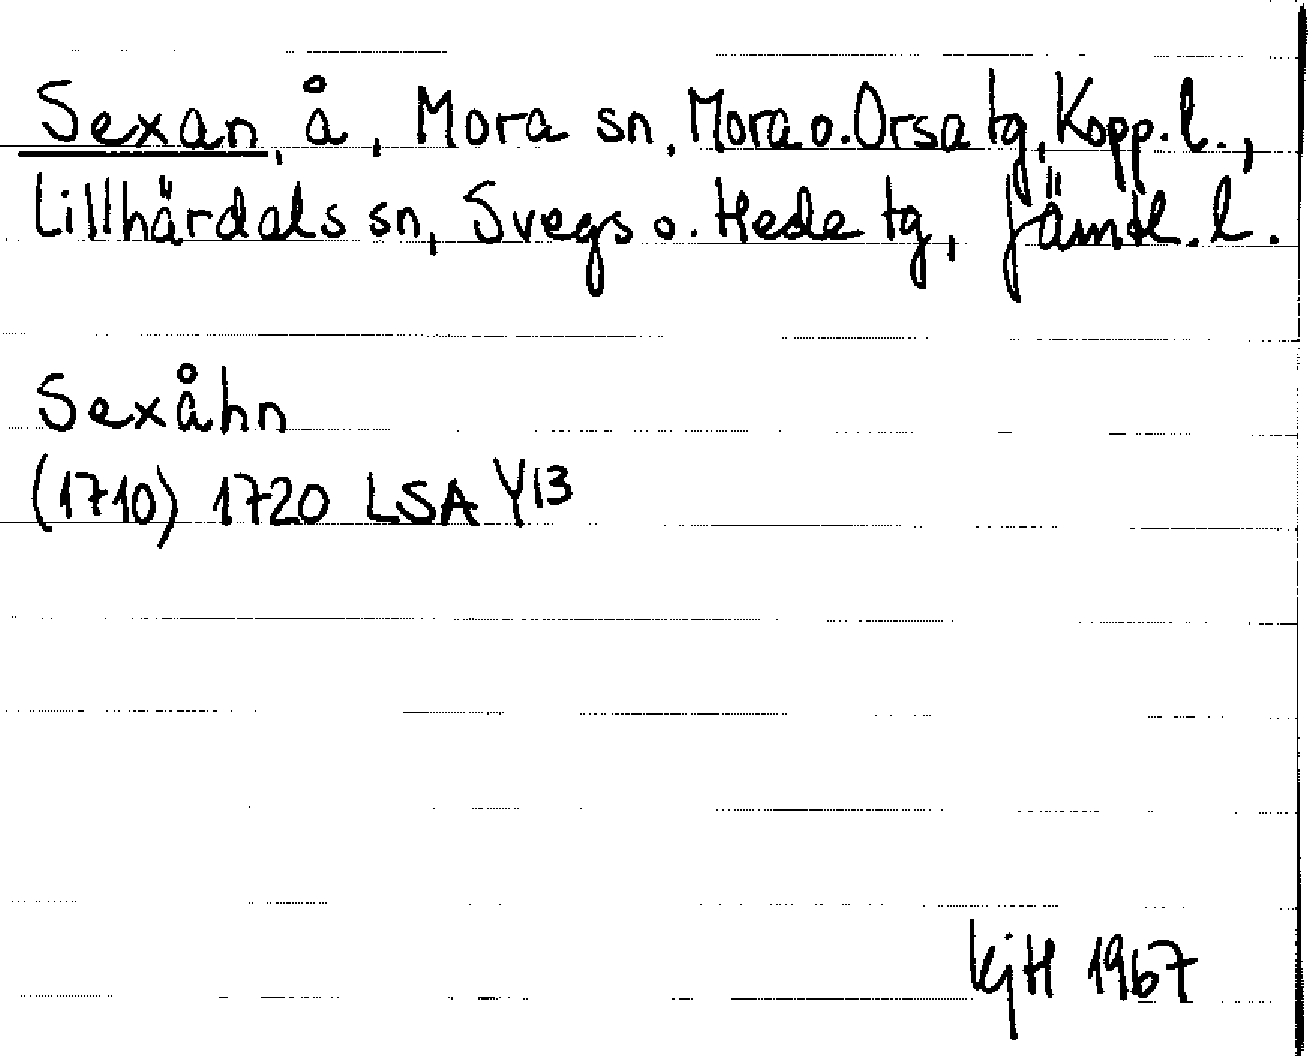 Sexan, å, Mora sn, Mora o. Orsa tg, Kopp. l.,
Lillhärdals sn, Svegs o. Hede tg, Jämtl. l.
Sexåhn
(1710) 1720 LSA Y13
KjH 1967